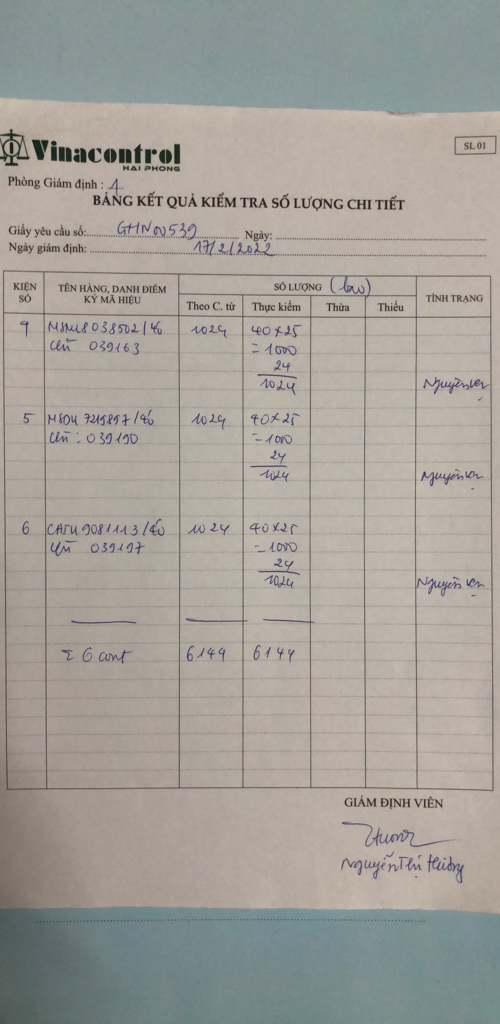 Vinacontrol
HẢI PHÒNG
SL 01
Phòng Giám định : 1
BẢNG KẾT QUẢ KIỂM TRA SỐ LƯỢNG CHI TIẾT
Giấy yêu cầu số: Ngày:
Ngày giám định: 17/2/2022
KIỆN SỐ TÊN HÀNG, DANH ĐIỂM KỲ MÃ HIỆU SỐ LƯỢNG (bao) TÌNH TRẠNG
Theo C. từ Thực kiểm Thừa Thiếu
4 1024 40×25
039163 = 1000
24
1024
Nguyên
5 1024 40×25
039190 = 1000
24
1024
Nguyên
6 1024 40×25
039197 = 1000
24
1024
Nguyên
Σ 6 cont 6144 6144
GIÁM ĐỊNH VIÊN
Nguyễn Thị